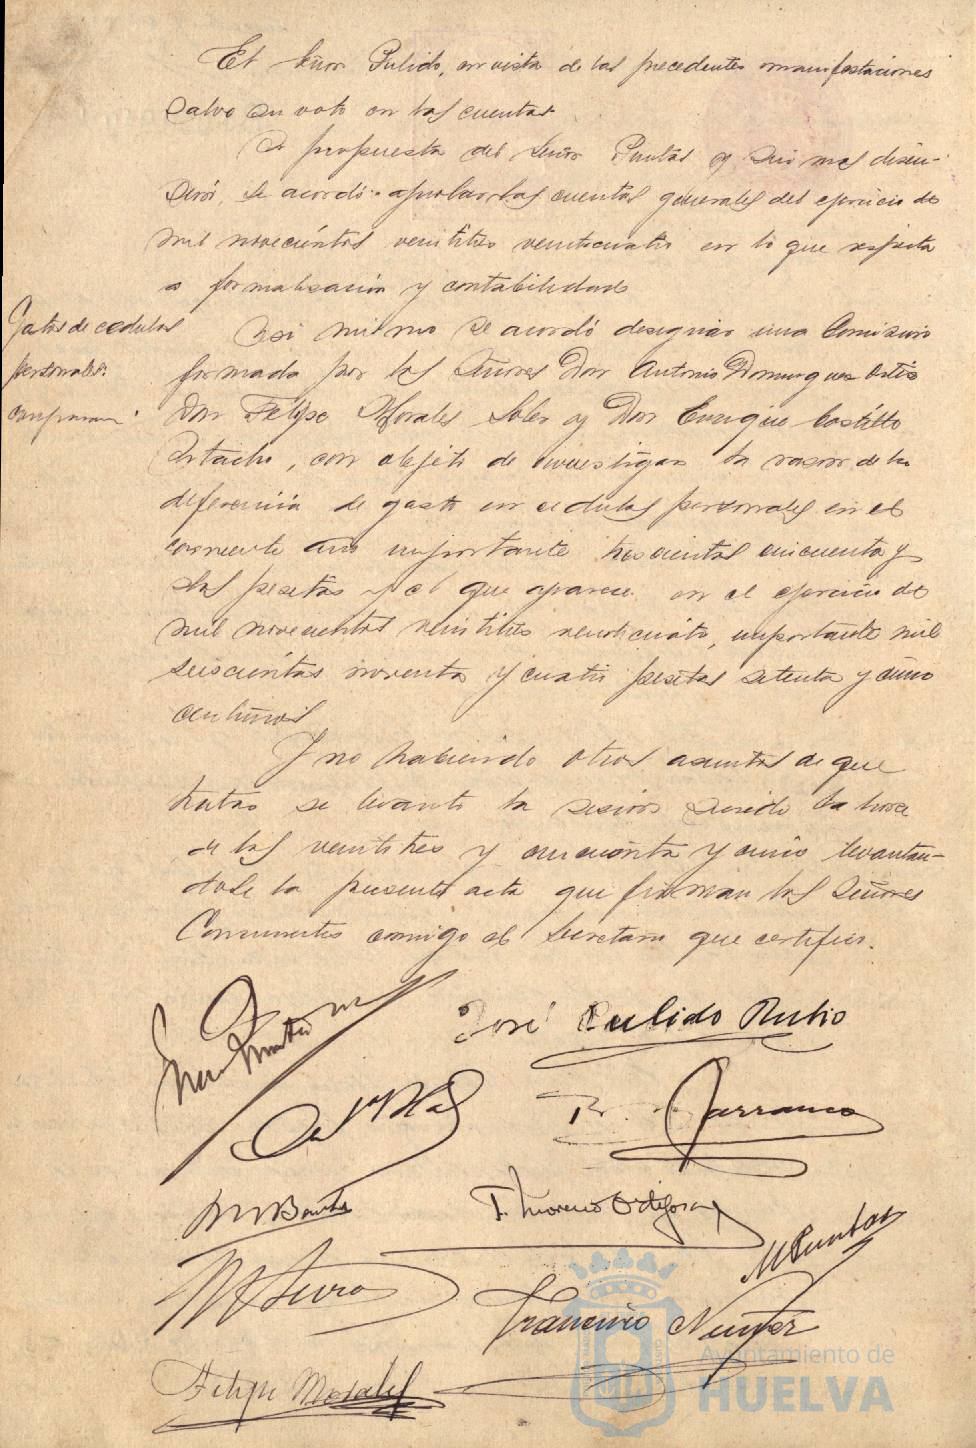 El Señor Pulido, en vista de las precedentes manifestaciones
salvo su voto en las cuentas
A propuesta del Señor Puntas y sin mas discu-
sion, se acordó aprobar las cuentas generales del ejercicio de
mil novecientos veintitres veinticuatro en lo que respecta
a formalización y contabilidad
Gastos de cedulas
personales.
Asi mismo se acordó designar una Comisión
formada por los Señores Don Antonio Dominguez Ortiz
Don Felipe Morales Soler y Don Enrique Castillo
con objeto de investigar la razon de la
diferencia de gasto en cedulas personales en el
corriente año importante trescientas cincuenta y
dos pesetas y el que aparece en el ejercicio de
mil novecientos veintitres veinticuatro, importante mil
seiscientas noventa y cuatro pesetas setenta y cinco
centimos
Y no habiendo otros asuntos de que
tratar se levantó la sesión siendo la hora
de las veintitres y cincuenta y cinco levantan-
dose la presente acta que firman los Señores
Concurrentes conmigo el Secretario que certifico.
José Pulido Rubio
Garranco
F. Moreno Ortigosa
M Puntas
Francisco
Felipe Morales
Ayuntamiento de
HUELVA